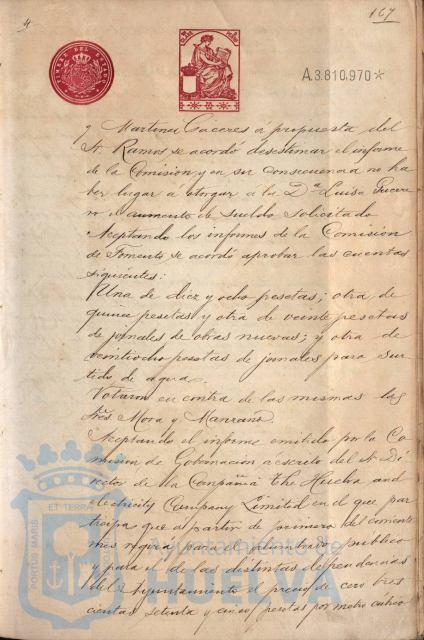 167
A.3.810.970*
y Martina Caceres á propuesta del
Sr. Ramos se acordó desestimar el informe
de la Comision y en su consecuencia no ha
ber lugar á otorgar á la Dª Luisa
el aumento de sueldo solicitado
Aceptando los informes de la Comision
de Fomento se acordó aprobar las cuentas
siguientes:
Una de diez y ocho pesetas; otra de
quince pesetas y otra de veinte pesetas
de jornales de obras nuevas; y otra de
veintiocho pesetas de jornales para sur
tido de agua.
Votaron en contra de las mismas los
Sres. Mora y Manzano.
Aceptando el informe emitido por la Co
mision de Gobernacion á escrito del Sr. Di
rector de la Compañia The Huelva and
electricity Company Limited en el que par
ticipa que á partir de primero del corriente
mes regirá para el alumbrado publico
y para el de las distintas dependencias
del Ayuntamiento el precio de cero tres
cientas setenta y cinco pesetas por metro cúbico
PORTUS MARIS
ET TERRAE
Ayuntamiento de
HUELVA